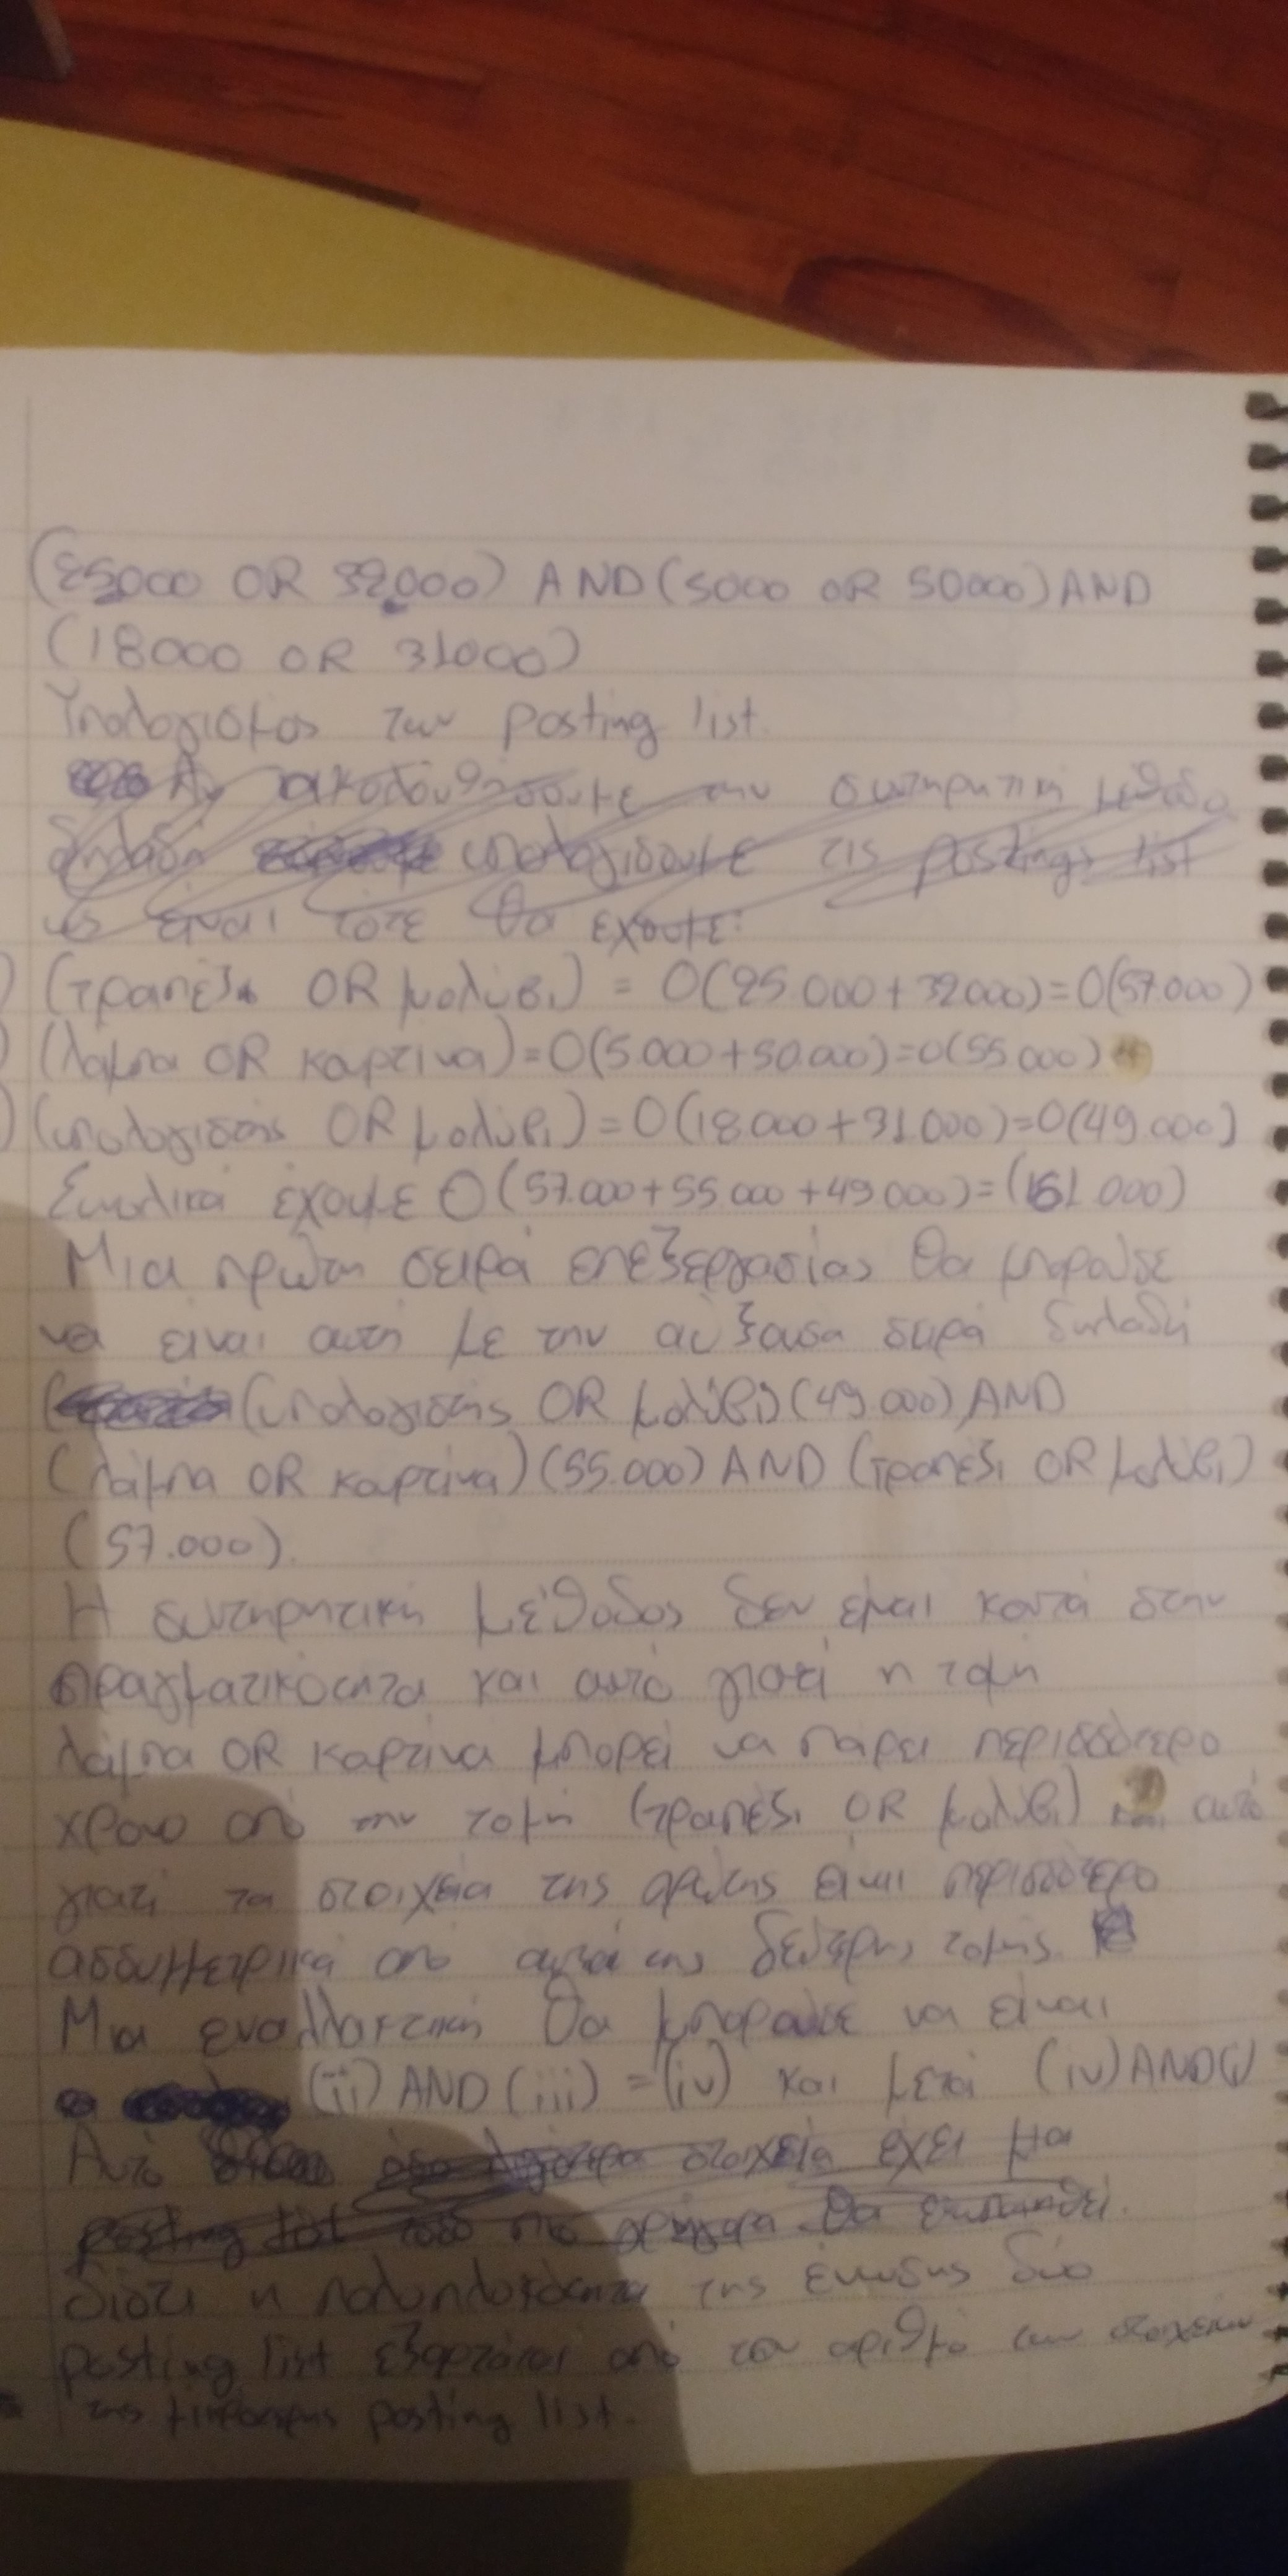 (25000 OR 32000) AND (5000 OR 50000) AND
(18000 OR 31000)
Υπολογισμος των posting list.
Αν ακολουθησουμε την συντηρητικη μεθοδο
δηλαδη υπολογισουμε τις postings list
ως ειναι τοτε θα εχουμε:
(τραπέζι OR μολυβι) = O(25.000+32000)=O(57.000)
(λαμπα OR καρτινα)=O(5.000+50.000)=O(55.000)
(υπολογιστής OR μολυβι)=O(18.000+31.000)=O(49.000)
Συνολικά έχουμε O(57.000+55.000+49.000)=(161.000)
Μια πρώτη σειρά επεξεργασίας θα μπορούσε
να ειναι αυτη με την αύξουσα σειρά δηλαδή
(υπολογιστής OR μολύβι)(49.000) AND
(λάμπα OR καρτίνα)(55.000) AND (τραπέζι OR μολύβι)
(57.000).
Η συντηρητική μέθοδος δεν είναι κοντά στην
πραγματικότητα και αυτό γιατί η τομή
λάμπα OR καρτίνα μπορεί να πάρει περισσότερο
χρόνο από την τομή (τραπέζι OR μολύβι) και αυτό
γιατί τα στοιχεία της πρώτης είναι περισσότερο
ασσυμμετρικά από αυτά της δεύτερης τομής.
Μια εναλλακτική θα μπορούσε να είναι
(ii) AND (iii) = (iv) και μετά (iv) AND (i)
Αυτό όσο λιγότερα στοιχεία έχει μια
posting list τόσο πιο γρήγορα θα
διότι η πολυπλοκότητα της ένωσης δύο
posting list εξαρτάται από τον αριθμό των στοιχείων
της μικρότερης posting list.